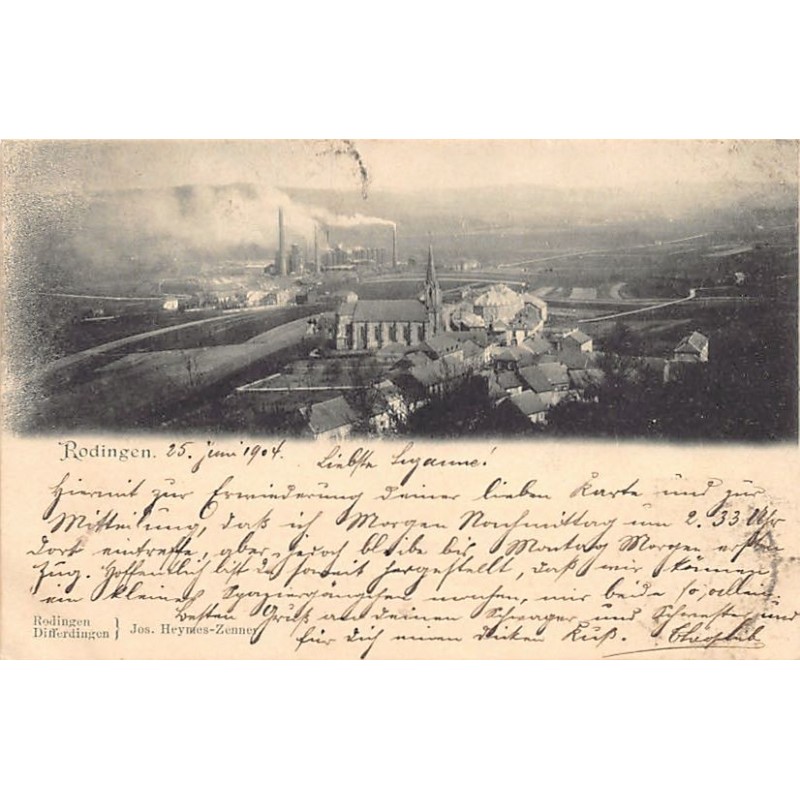 Rodingen. 25. Juni 1904.
Liebste Suzanne!
Hiermit zur Erwiederung deiner lieben Karte und zur
Mitteilung, daß ich Morgen Nachmittag um 2.33 Uhr
dort eintreffe, aber jedoch bleibe bis Montag Morgen ersten
Zug. Hoffentlich bist du soweit hergestellt, daß wir können
ein kleines Spaziergängchen machen, wir beide so allein.
Besten Gruß an deinen Schwager und Schwester und
für Dich einen dicken Kuß.
Rodingen
Differdingen } Jos. Heymes-Zenner